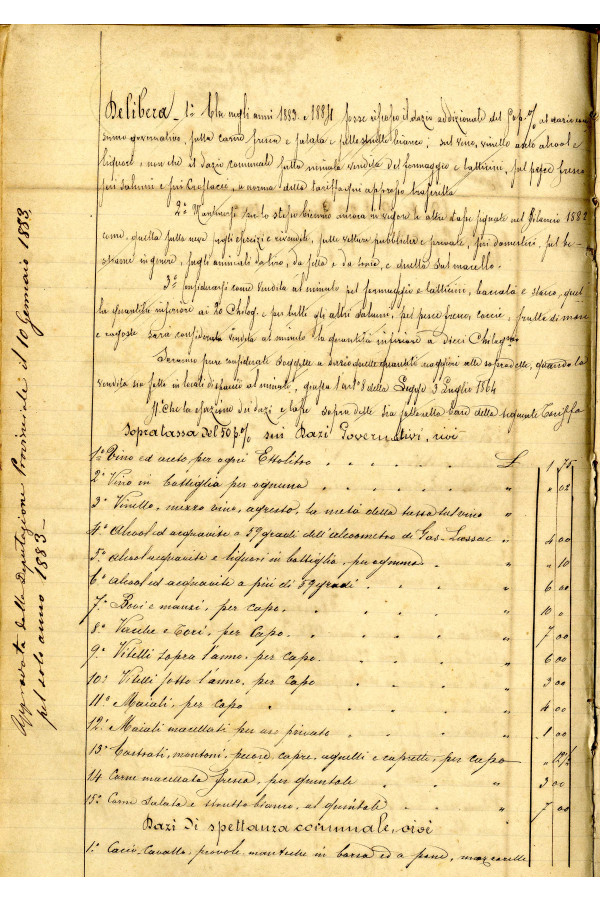 Delibera - 1º Che negli anni 1883 e 1884 fosse il dazio addizionale del 50 p. % al dazio con
sumo governativo, sulla carne fresca e salata e sullo strutto bianco, sul vino, vinello aceto alcool e
liquori e non che il dazio comunale sulla minuta vendita del formaggio e latticini, sul pesce fresco
sui salumi e sui Crostacei, a norma della tariffa qui appresso trascritta
2º Mantenersi per lo stesso biennio ancora in vigore le altre tasse segnate nel Bilancio 1882
come quella sulla neve sugli esercizi e rivendite, sulle vetture pubbliche e private, sui domestici, sul be-
stiame in genere, sugli animali da tiro, da sella e da soma, e quella sul macello.
3º considerarsi come vendita al minuto pel formaggio e latticini, baccalà e stocco, quel
la quantità inferiore ai 20 Chilog. e per tutti gli altri salumi, pel pesce fresco, coccio, frutta di mare
e ragoste sarà considerata vendita al minuto la quantità inferiore a dieci Chilogmi.
Saranno pure considerati soggette a dazio quelle quantità maggiori alle sopradette, quando la
vendita sia fatta in locali di spaccio al minuto, giusta l'art. della Legge 3 Luglio 1864
4º Che la esazione dei dazi e tasse sopra dette sia fatta sulla base della seguente Tariffa
Sopratassa del 50 p. % sui Dazi Governativi, cioè
1º Vino ed aceto per ogni Ettolitro . . . . . £ 1 75
2º Vino in bottiglia per ognuna . . . . . " " 02
3º Vinello, mezzo vino, agresto, la metà della tassa sul vino "
4º Alcool ed acquavite a 59 gradi dell'alcoometro di Gas-Lussac " 4 00
5º Alcool acquavite e liquori in bottiglia, per ognuna . " " 10
6º Alcool ed acquavite a più di 59 gradi . . . " 6 00
7º Bovi e manzi, per capo . . . . . " 10 "
8º Vacche e Tori, per Capo . . . . . " 7 00
9º Vitelli sopra l'anno, per capo . . . . " 6 00
10º Vitelli sotto l'anno, per capo . . . . " 3 00
11º Maiali, per capo . . . . . " 4 00
12º Maiali macellati per uso privato . . . . " 1 00
13º Castrati, montoni, pecore, capre, agnelli e capretti, per capo " " 12½
14 Carne macellata fresca, per quintale . . . " 3 00
15º Carne salata e strutto bianco, al quintale . . " 7 00
Dazi di spettanza comunale, cioè
1º Cacio-Cavallo, provole, manteche in borsa ed a pane, mozzarelle
Approvata dalla Deputazione Provinciale il 10 Gennaio 1883,
pel solo anno 1883 -